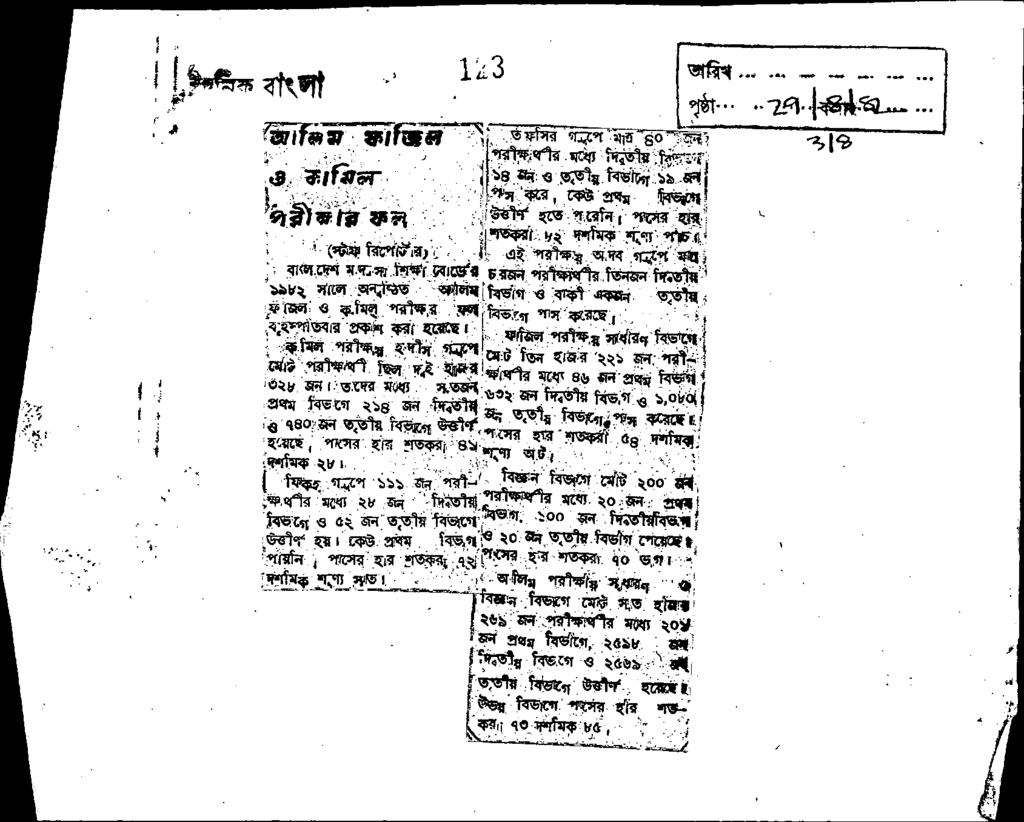 দৈনিক বাংলা
123
তারিখ ... ... ... ... ... ... ...
পৃষ্ঠা... ... 29/8/82 ... ...
3/8
আলিম ফাজিল
ও কামিল
পরীক্ষার ফল
(স্টাফ রিপোর্টার)
বাংলাদেশ মাদ্রাসা শিক্ষা বোর্ডের
১৯৮২ সালে অনুষ্ঠিত আলিম
ফাজিল ও কামিল পরীক্ষার ফল
বৃহস্পতিবার প্রকাশ করা হয়েছে।
কামিল পরীক্ষায় হাদীস গ্রুপে
মোট পরীক্ষার্থী ছিল দুই হাজার
৩২৮ জন। তাদের মধ্যে সাতজন
প্রথম বিভাগে ২১৪ জন দ্বিতীয়
ও ৭৪০ জন তৃতীয় বিভাগে উত্তীর্ণ
হয়েছে, পাসের হার শতকরা ৪১
দশমিক ২৮।
ফিকাহ গ্রুপে ১১১ জন পরী-
ক্ষার্থীর মধ্যে ২৮ জন দ্বিতীয়
বিভাগে ও ৫২ জন তৃতীয় বিভাগে
উত্তীর্ণ হয়। কেউ প্রথম বিভাগ
পায়নি, পাসের হার শতকরা ৭২
দশমিক শূণ্য সাত।
তফসির গ্রুপে মাত্র ৪০ জন
পরীক্ষার্থীর মধ্যে দ্বিতীয় বিভাগে
১৪ জন ও তৃতীয় বিভাগে ১৯ জন
পাস করে, কেউ প্রথম বিভাগে
উত্তীর্ণ হতে পারেনি। পাসের হার
শতকরা ৮২ দশমিক শূণ্য পাঁচ।
এই পরীক্ষায় আদব গ্রুপে মাত্র
চারজন পরীক্ষার্থীর তিনজন দ্বিতীয়
বিভাগ ও বাকী একজন তৃতীয়
বিভাগে পাস করেছে।
ফাজিল পরীক্ষায় সাধারণ বিভাগে
মোট তিন হাজার ২২১ জন পরী-
ক্ষার্থীর মধ্যে ৪৬ জন প্রথম বিভাগ
৬৩২ জন দ্বিতীয় বিভাগ ও ১,০৮০
জন তৃতীয় বিভাগে পাস করেছে।
পাসের হার শতকরা ৫৪ দশমিক
শূণ্য আট।
বিজ্ঞান বিভাগে মোট ২০০ জন
পরীক্ষার্থীর মধ্যে ২০ জন প্রথম
বিভাগ, ১০০ জন দ্বিতীয়বিভাগ
ও ২০ জন তৃতীয় বিভাগ পেয়েছে।
পাসের হার শতকরা ৭০ ভাগ।
আলিম পরীক্ষায় সাধারণ ও
বিজ্ঞান বিভাগে মোট সাত হাজার
২৬১ জন পরীক্ষার্থীর মধ্যে ২০১
জন প্রথম বিভাগে, ২৫৯৮ জন
দ্বিতীয় বিভাগে ও ২৫৬৯ জন
তৃতীয় বিভাগে উত্তীর্ণ হয়েছে।
উভয় বিভাগে পাসের হার শত-
করা ৭৩ দশমিক ৮৫।